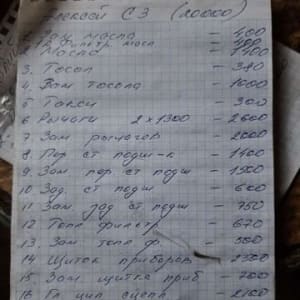 Алексей СЗ (20000)
1. Зам масла - 400
1а. Фильтр масл - 400
2. Масло - 1400
3. Тосол - 380
4. Зам тосола - 1000
5 Такси - 300
6 Рычаги 2x1300 - 2600
7. Зам рычагов - 2000
8. Пер ст подш-к - 1400
9. Зам пер ст подш - 1500
10 Зад. ст подш - 600
11 Зам зад ст подш - 750
12 Топл фильтр - 670
13. Зам топл ф. - 500
14 Щиток приборов - 2500
15 Зам щитка приб - 700
16 Гл цил сцепл - 2100